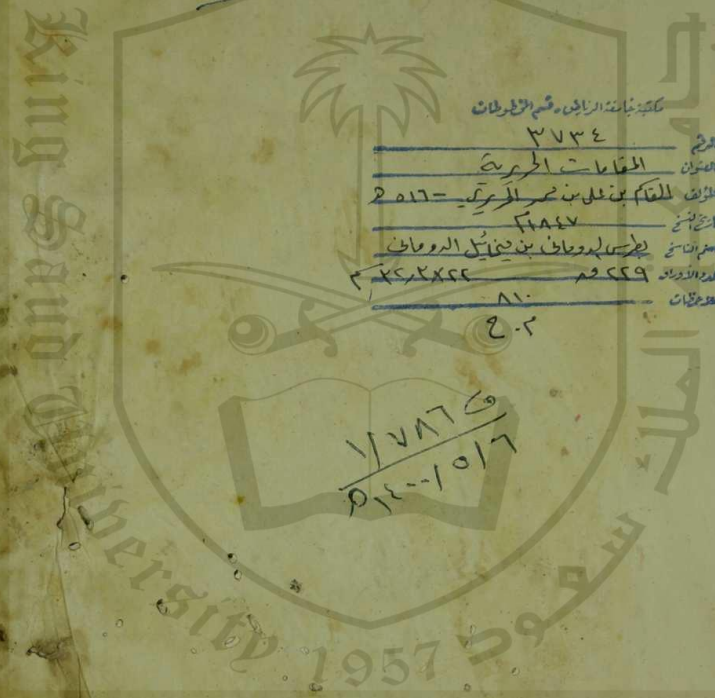 مكتبة جامعة الرياض - قسم المخطوطات
الرقم ٣٧٣٤
العنوان المقامات الحريرية
المؤلف القاسم بن علي بن محمد الحريري - ٥١٦ هـ
تاريخ النسخ ١٨٤٧ م
اسم الناسخ بطرس الدوماني بن ميخائيل الدوماني
عدد الأوراق ٢٢٩ ق ٣٢,٣×٢٢ سم
ملاحظات ٨١٠
م.ع
ف ١/٧٨٦
١٤٠٠/٥/٦ هـ
King Saud University 1957
جامعة الملك سعود